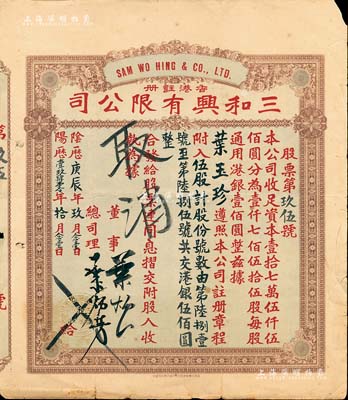 SAM WO HING & CO., LTD.
香港註册
三和興有限公司
股票第玖伍號
本公司收足資本壹拾七萬伍仟伍
佰圓分為壹仟七佰伍拾伍股每股
通用港銀壹佰圓堂茲據
葉玉珍 遵照本公司註册章程
附伍股計股份號數由第陸捌壹
號至第陸捌伍號共交港銀伍佰圓
整
合發給股票連同息摺交附股人收
執為據
董事
總司理
陰歷庚辰年玖月
陽歷壹玖肆零年拾月
取消